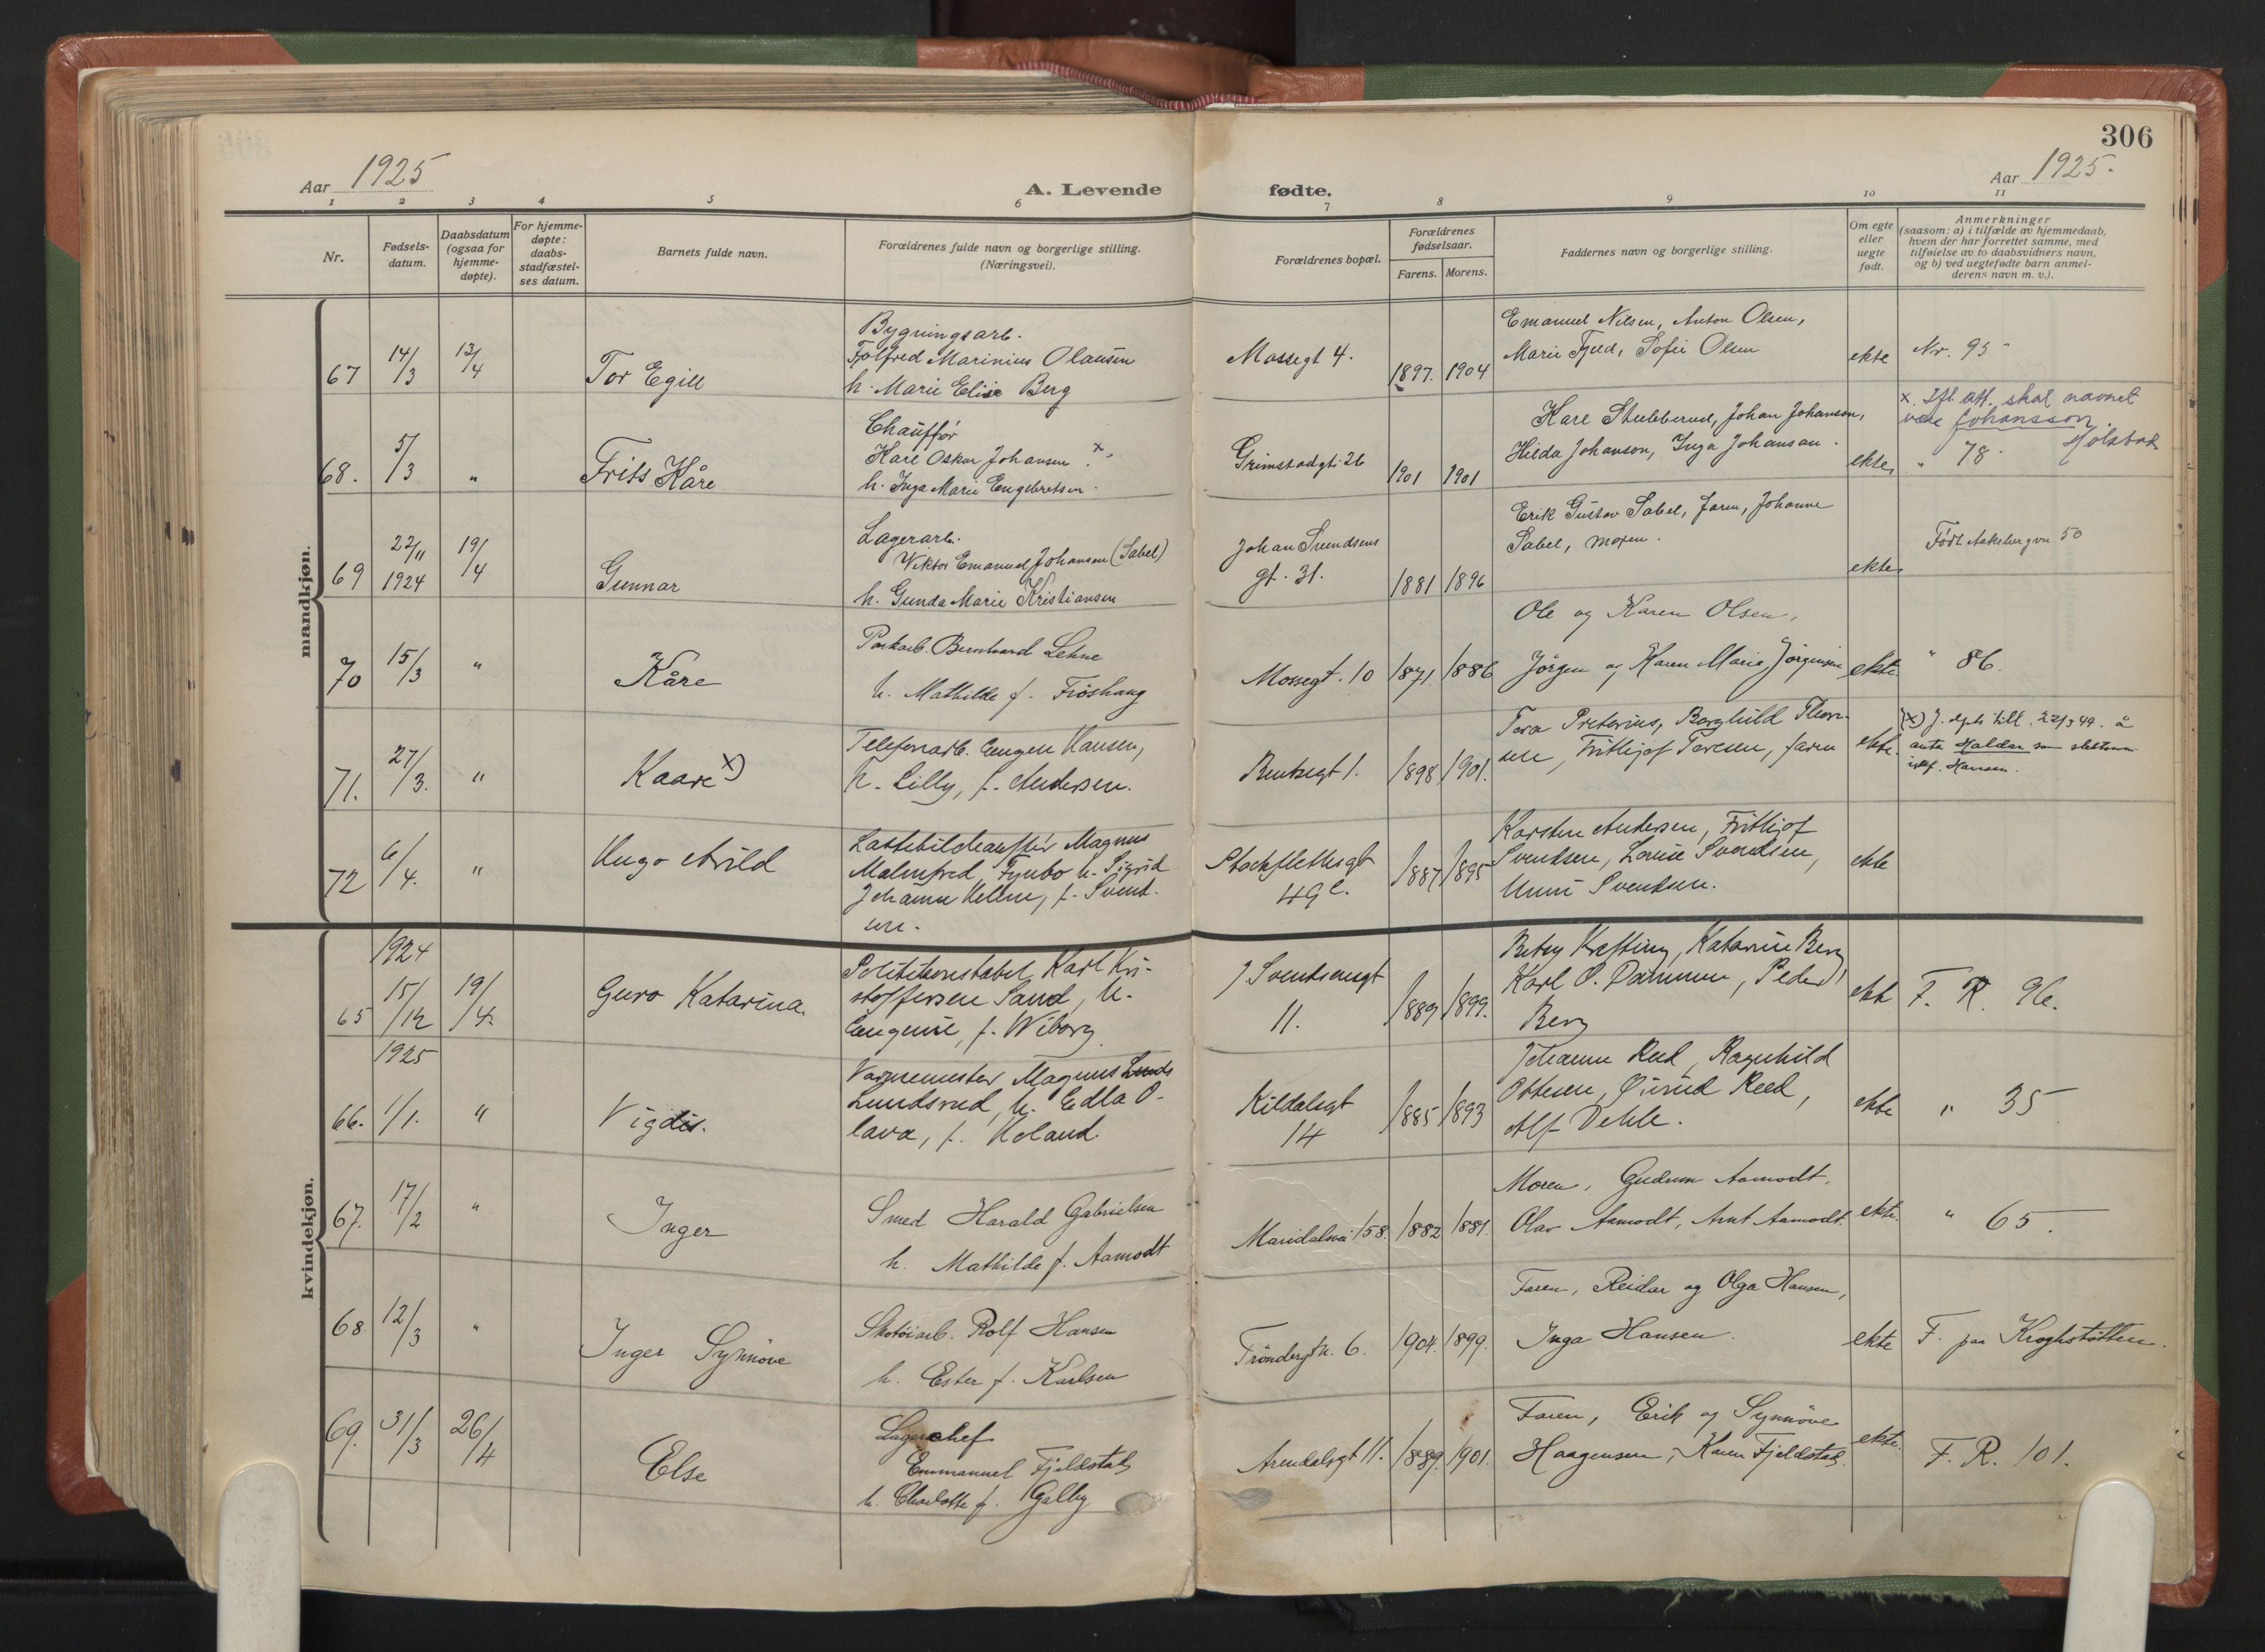 306
Aar 1925
A. Levende fødte.
Aar 1925.
1 2 3 4 5 6 7 8 9 10 11
Nr.
Fødsels-
datum.
Daabsdatum
(ogsaa for
hjemme-
døpte).
For hjemme-
døpte:
daabs-
stadfæstel-
ses datum.
Barnets fulde navn.
Forældrenes fulde navn og borgerlige stilling.
(Næringsvei).
Forældrenes bopæl.
Forældrenes
fødselsaar.
Farens. Morens.
Faddernes navn og borgerlige stilling.
Om egte
eller
uegte
født.
Anmerkninger
(saasom: a) i tilfælde av hjemmedaab,
hvem der har forrettet samme, med
tilføielse av to daabsvidners navn,
og b) ved uegtefødte barn anmel-
derens navn m. v.).
mandkjøn.
67 14/3 13/4
Tor Egill
Bygningsarb.
Marinius Olausen
h. Marie Elise Berg
Mossegt 4.
1897. 1904
Emanuel Nilsen, Anton Olsen,
Marie Fjeld, Sofie Olsen
ekte
Nr. 93
68. 5/3 "
Frits Kåre
Chauffør
Karl Oskar Johansen x
h. Inga Marie Engebretsen
Grimstadgt. 26
1901 1901
Karl Stubberud, Johan Johanson,
Hilda Johanson, Inga Johanson.
ekte
x. Ifl. att. skal navnet
være Johansson.
" 78
69 22/11 1924 19/4
Gunnar
Lagerarb.
Viktor Emanuel Johansen (Sabel)
h. Gunda Marie Kristiansen
Johan Svendsens
gt. 31.
1881 1896
Erik Gustav Sabel, faren, Johanne
Sabel, moren.
ekte
Født Aakebergvn 50
70 15/3 "
Kåre
Parkarb. Bernhard Lehne
h. Mathilde f. Frøshaug
Mossegt. 10
1871. 1886
Ole og Karen Olsen,
Jörgen og Karen Marie Jörgensen
ekte
" 86.
71. 27/3. "
Kaare x)
Telefonarb. Eugen Hansen,
h. Lilly, f. Andersen.
Bentsegt 1.
1898 1901.
Tora Pretorius, Borghild Thor-
sen, Frithjof Toresen, faren
ekte.
(x) J. dpts till. 22/3 49. å
anta Haldar som slektsnavn
istf. Hansen.
72 6/4. "
Hugo Arild
Lastebilchauffør Magnus
Malmfred Fynbo h. Sigrid
Johanne Helene, f. Svend-
sen.
Stockflethsgt
49c.
1887 1895
Karsten Andersen, Frithjof
Svendsen, Louise Svendsen,
Unni Svendsen.
ekte
kvindekjøn.
1924
65 15/12 19/4.
Guro Katarina.
Politikonstabel Karl Kri-
stoffersen Sand, h.
Eugenie, f. Wiborg.
J Svendsensgt
11.
1889 1899.
Betsy Krefting, Katarina Berg,
Karl O. Dammen, Peder
Berg
ekte
F. R. 96.
1925
66. 1/1. "
Vigdis.
Magnus Lunds
Lundsrud, h. Edla O-
lava, f. Holand.
Kildalsgt
14
1885 1893
Johanne Reed, Ragnhild
Ottesen, Øivind Reed,
Alf Dehle.
ekte
" 35
67. 17/2 "
Inger
Smed Harald Gabrielsen
h. Mathilde f. Aamodt
Maridalsvei 158.
1882 1881.
Moren, Gudrun Aamodt,
Olav Aamodt, Arnt Aamodt.
ekte.
" 65.
68. 12/3 "
Inger Synnöve
Skotöiarb. Rolf Hansen
h. Ester f. Karlsen
Tröndergtn. 6.
1904. 1899.
Faren, Reidar og Olga Hansen,
Inga Hansen.
ekte
F. paa Kroghstøtten.
69. 31/3 26/4
Else
Lagerchef
Emmanuel Fjeldstad
h. Charlotte f. Galby
Arendalsgt 11.
1889. 1901.
Faren, Erik og Synnöve
Haagensen, Karen Fjeldstad.
ekte.
F. R. 101.